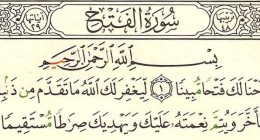 ترتيبها ٤٨ سُورَةُ الْفَتْحِ آياتها ٢٩
بِسْمِ اللَّهِ الرَّحْمَٰنِ الرَّحِيمِ
حْنَا لَكَ فَتْحًا مُّبِينًا ١ لِّيَغْفِرَ لَكَ اللَّهُ مَا تَقَدَّمَ مِن ذَنۢبِ
تَأَخَّرَ وَيُتِمَّ نِعْمَتَهُۥ عَلَيْكَ وَيَهْدِيَكَ صِرَٰطًا مُّسْتَقِيمًا